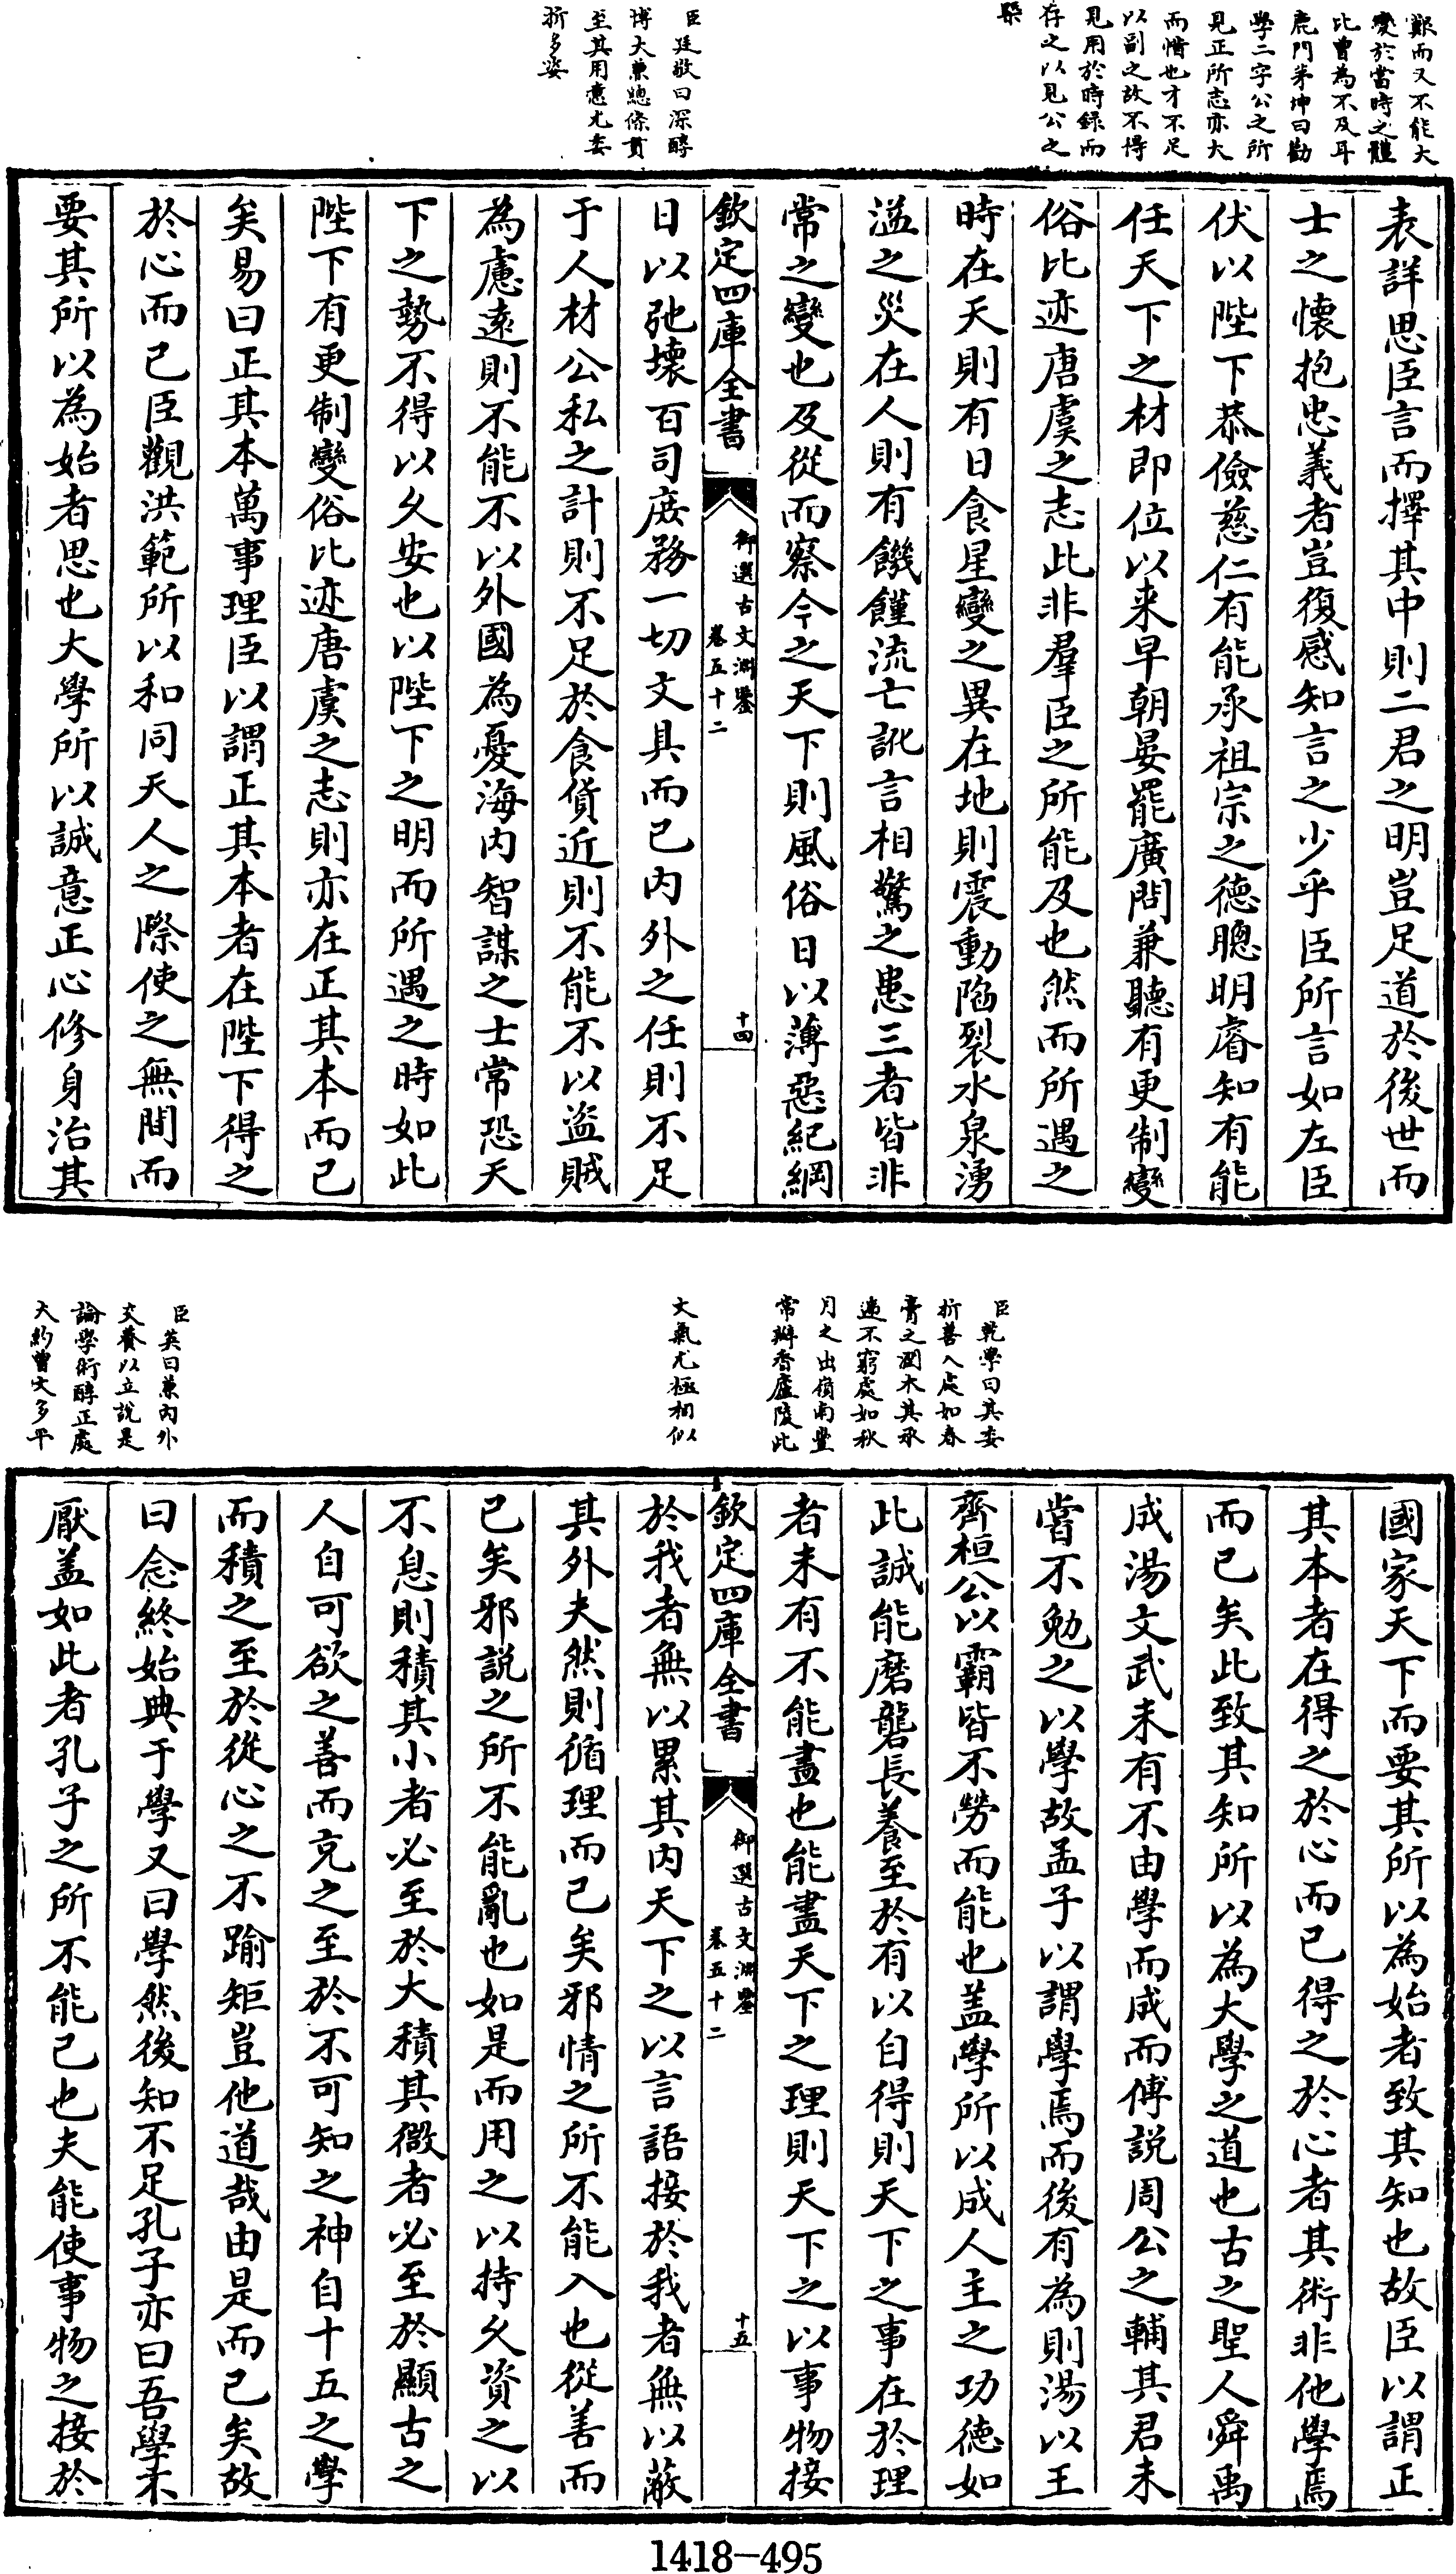 艱而又不能大
變於當時之體
比曾為不及耳
鹿門茅坤曰勸
學二字公之所
見正所志亦大
而惜也才不足
以副之故不得
見用於時録而
存之以見公之
槩
臣廷敬曰深醇
博大兼總條貫
至其用意尤委
折多姿
表詳思臣言而擇其中則二君之明豈足道於後世而
士之懷抱忠義者豈復感知言之少乎臣所言如左臣
伏以陛下恭儉慈仁有能承祖宗之德聰明睿知有能
任天下之材即位以来早朝晏罷廣問兼聽有更制變
俗比迹唐虞之志此非羣臣之所能及也然而所遇之
時在天則有日食星變之異在地則震動陷裂水泉湧
溢之災在人則有饑饉流亡訛言相驚之患三者皆非
常之變也及從而察今之天下則風俗日以薄惡紀綱
欽定四庫全書
御選古文淵鑒
卷五十二
十四
日以弛壊百司庶務一切文具而已内外之任則不足
于人材公私之計則不足於食貨近則不能不以盗賊
為慮遠則不能不以外國為憂海内智謀之士常恐天
下之勢不得以久安也以陛下之明而所遇之時如此
陛下有更制變俗比迹唐虞之志則亦在正其本而已
矣易曰正其本萬事理臣以謂正其本者在陛下得之
於心而已臣觀洪範所以和同天人之際使之無間而
要其所以為始者思也大學所以誠意正心修身治其
臣乾學曰其委
折善入處如春
膏之潤木其承
遞不窮處如秋
月之出嶺南豐
常辦香廬陵此
文氣尤極相似
臣英曰兼内外
交養以立說是
論學術醇正處
大約曾文多平
國家天下而要其所以為始者致其知也故臣以謂正
其本者在得之於心而已得之於心者其術非他學焉
而已矣此致其知所以為大學之道也古之聖人舜禹
成湯文武未有不由學而成而傅説周公之輔其君未
嘗不勉之以學故孟子以謂學焉而後有為則湯以王
齊桓公以霸皆不勞而能也盖學所以成人主之功德如
此誠能磨礲長養至於有以自得則天下之事在於理
者未有不能盡也能盡天下之理則天下之以事物接
欽定四庫全書
御選古文淵鑒
卷五十二
十五
於我者無以累其内天下之以言語接於我者無以蔽
其外夫然則循理而已矣邪情之所不能入也從善而
已矣邪説之所不能亂也如是而用之以持久資之以
不息則積其小者必至於大積其微者必至於顯古之
人自可欲之善而充之至於不可知之神自十五之學
而積之至於從心之不踰矩豈他道哉由是而已矣故
曰念終始典于學又曰學然後知不足孔子亦曰吾學不
厭盖如此者孔子之所不能已也夫能使事物之接於
1418-495